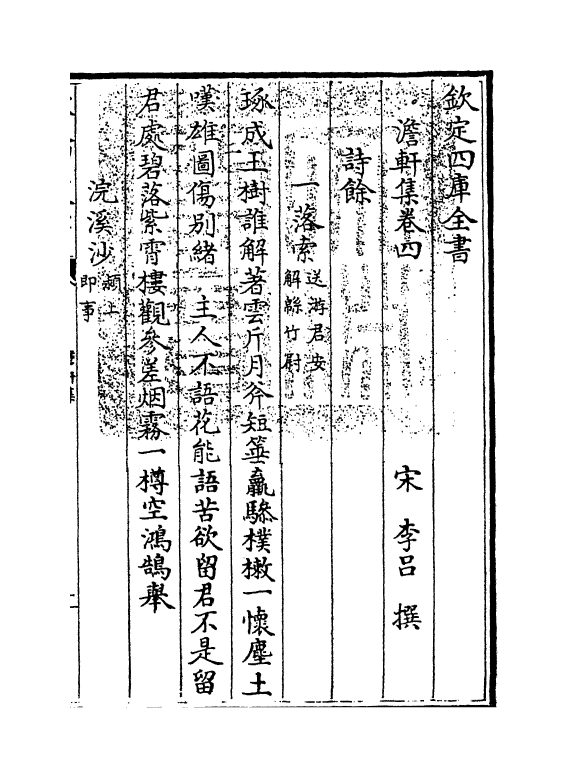 欽定四庫全書
澹軒集卷四　宋　李呂　撰
詩餘
一落索 送游君安解綿竹尉
琢成玉樹誰解著雲斤月斧短簑羸驂樸樕一懷塵土
嘆雄圖傷別緒　主人不語花能語苦欲留君不是留
君處碧落紫霄樓觀參差烟霧一樽空鴻鵠舉
浣溪沙 即事